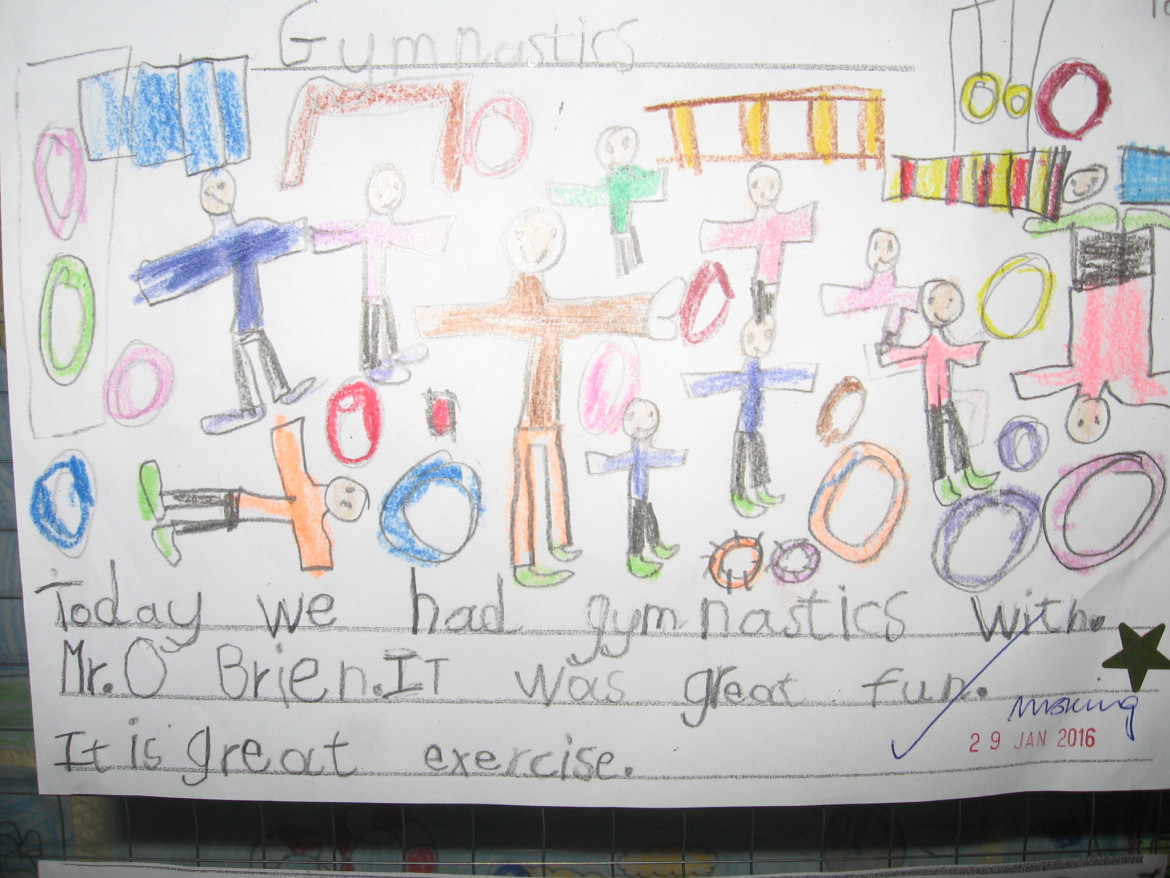 Gymnastics
Today we had gymnastics with.
Mr. O Brien. IT was great fun.
It is great exercise.
29 JAN 2016